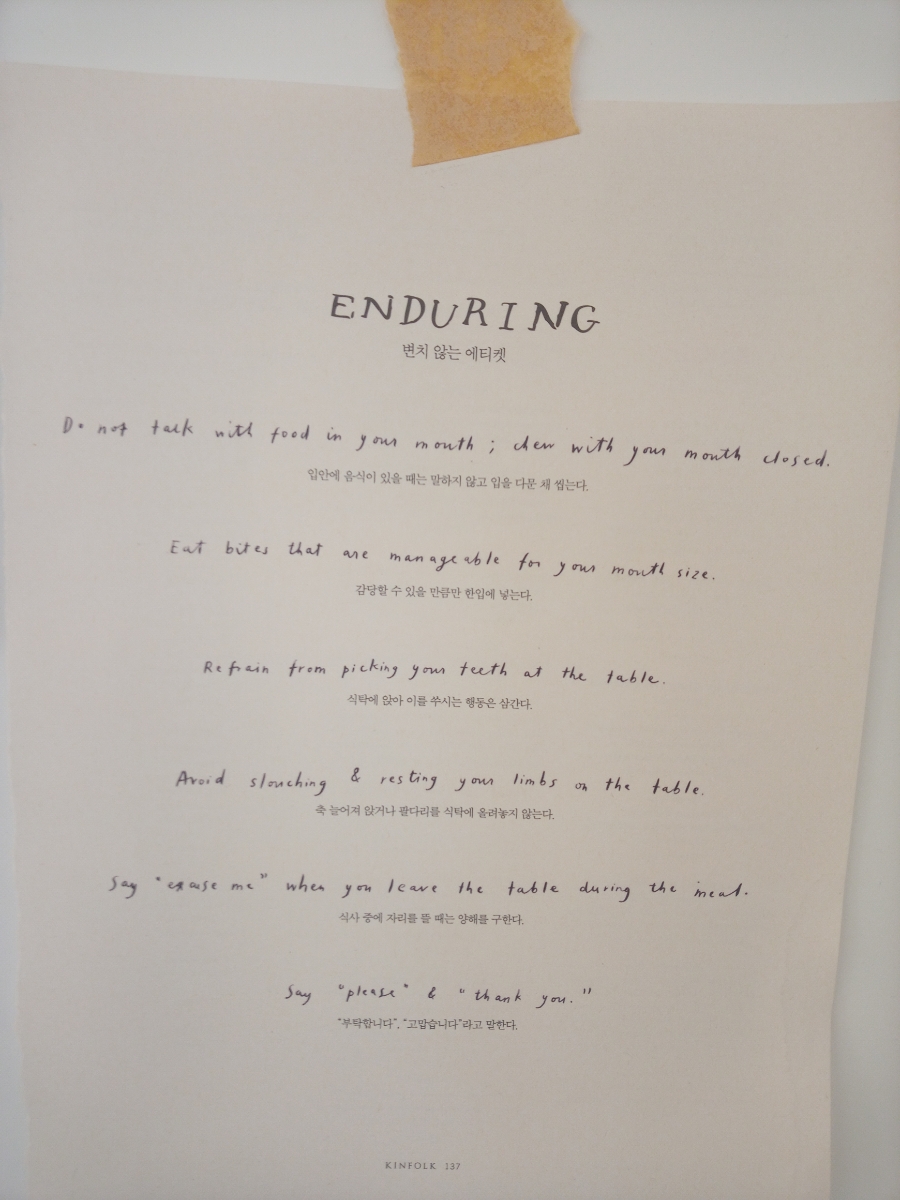 ENDURING
변치 않는 에티켓
Do not talk with food in your mouth ; chew with your mouth closed.
입안에 음식이 있을 때는 말하지 않고 입을 다문 채 씹는다.
Eat bites that are manageable for your mouth size.
감당할 수 있을 만큼만 한입에 넣는다.
Refrain from picking your teeth at the table.
식탁에 앉아 이를 쑤시는 행동은 삼간다.
Avoid slouching & resting your limbs on the table.
축 늘어져 앉거나 팔다리를 식탁에 올려놓지 않는다.
Say "excuse me" when you leave the table during the meal.
식사 중에 자리를 뜰 때는 양해를 구한다.
Say "please" & "thank you."
"부탁합니다", "고맙습니다"라고 말한다.
KINFOLK 137